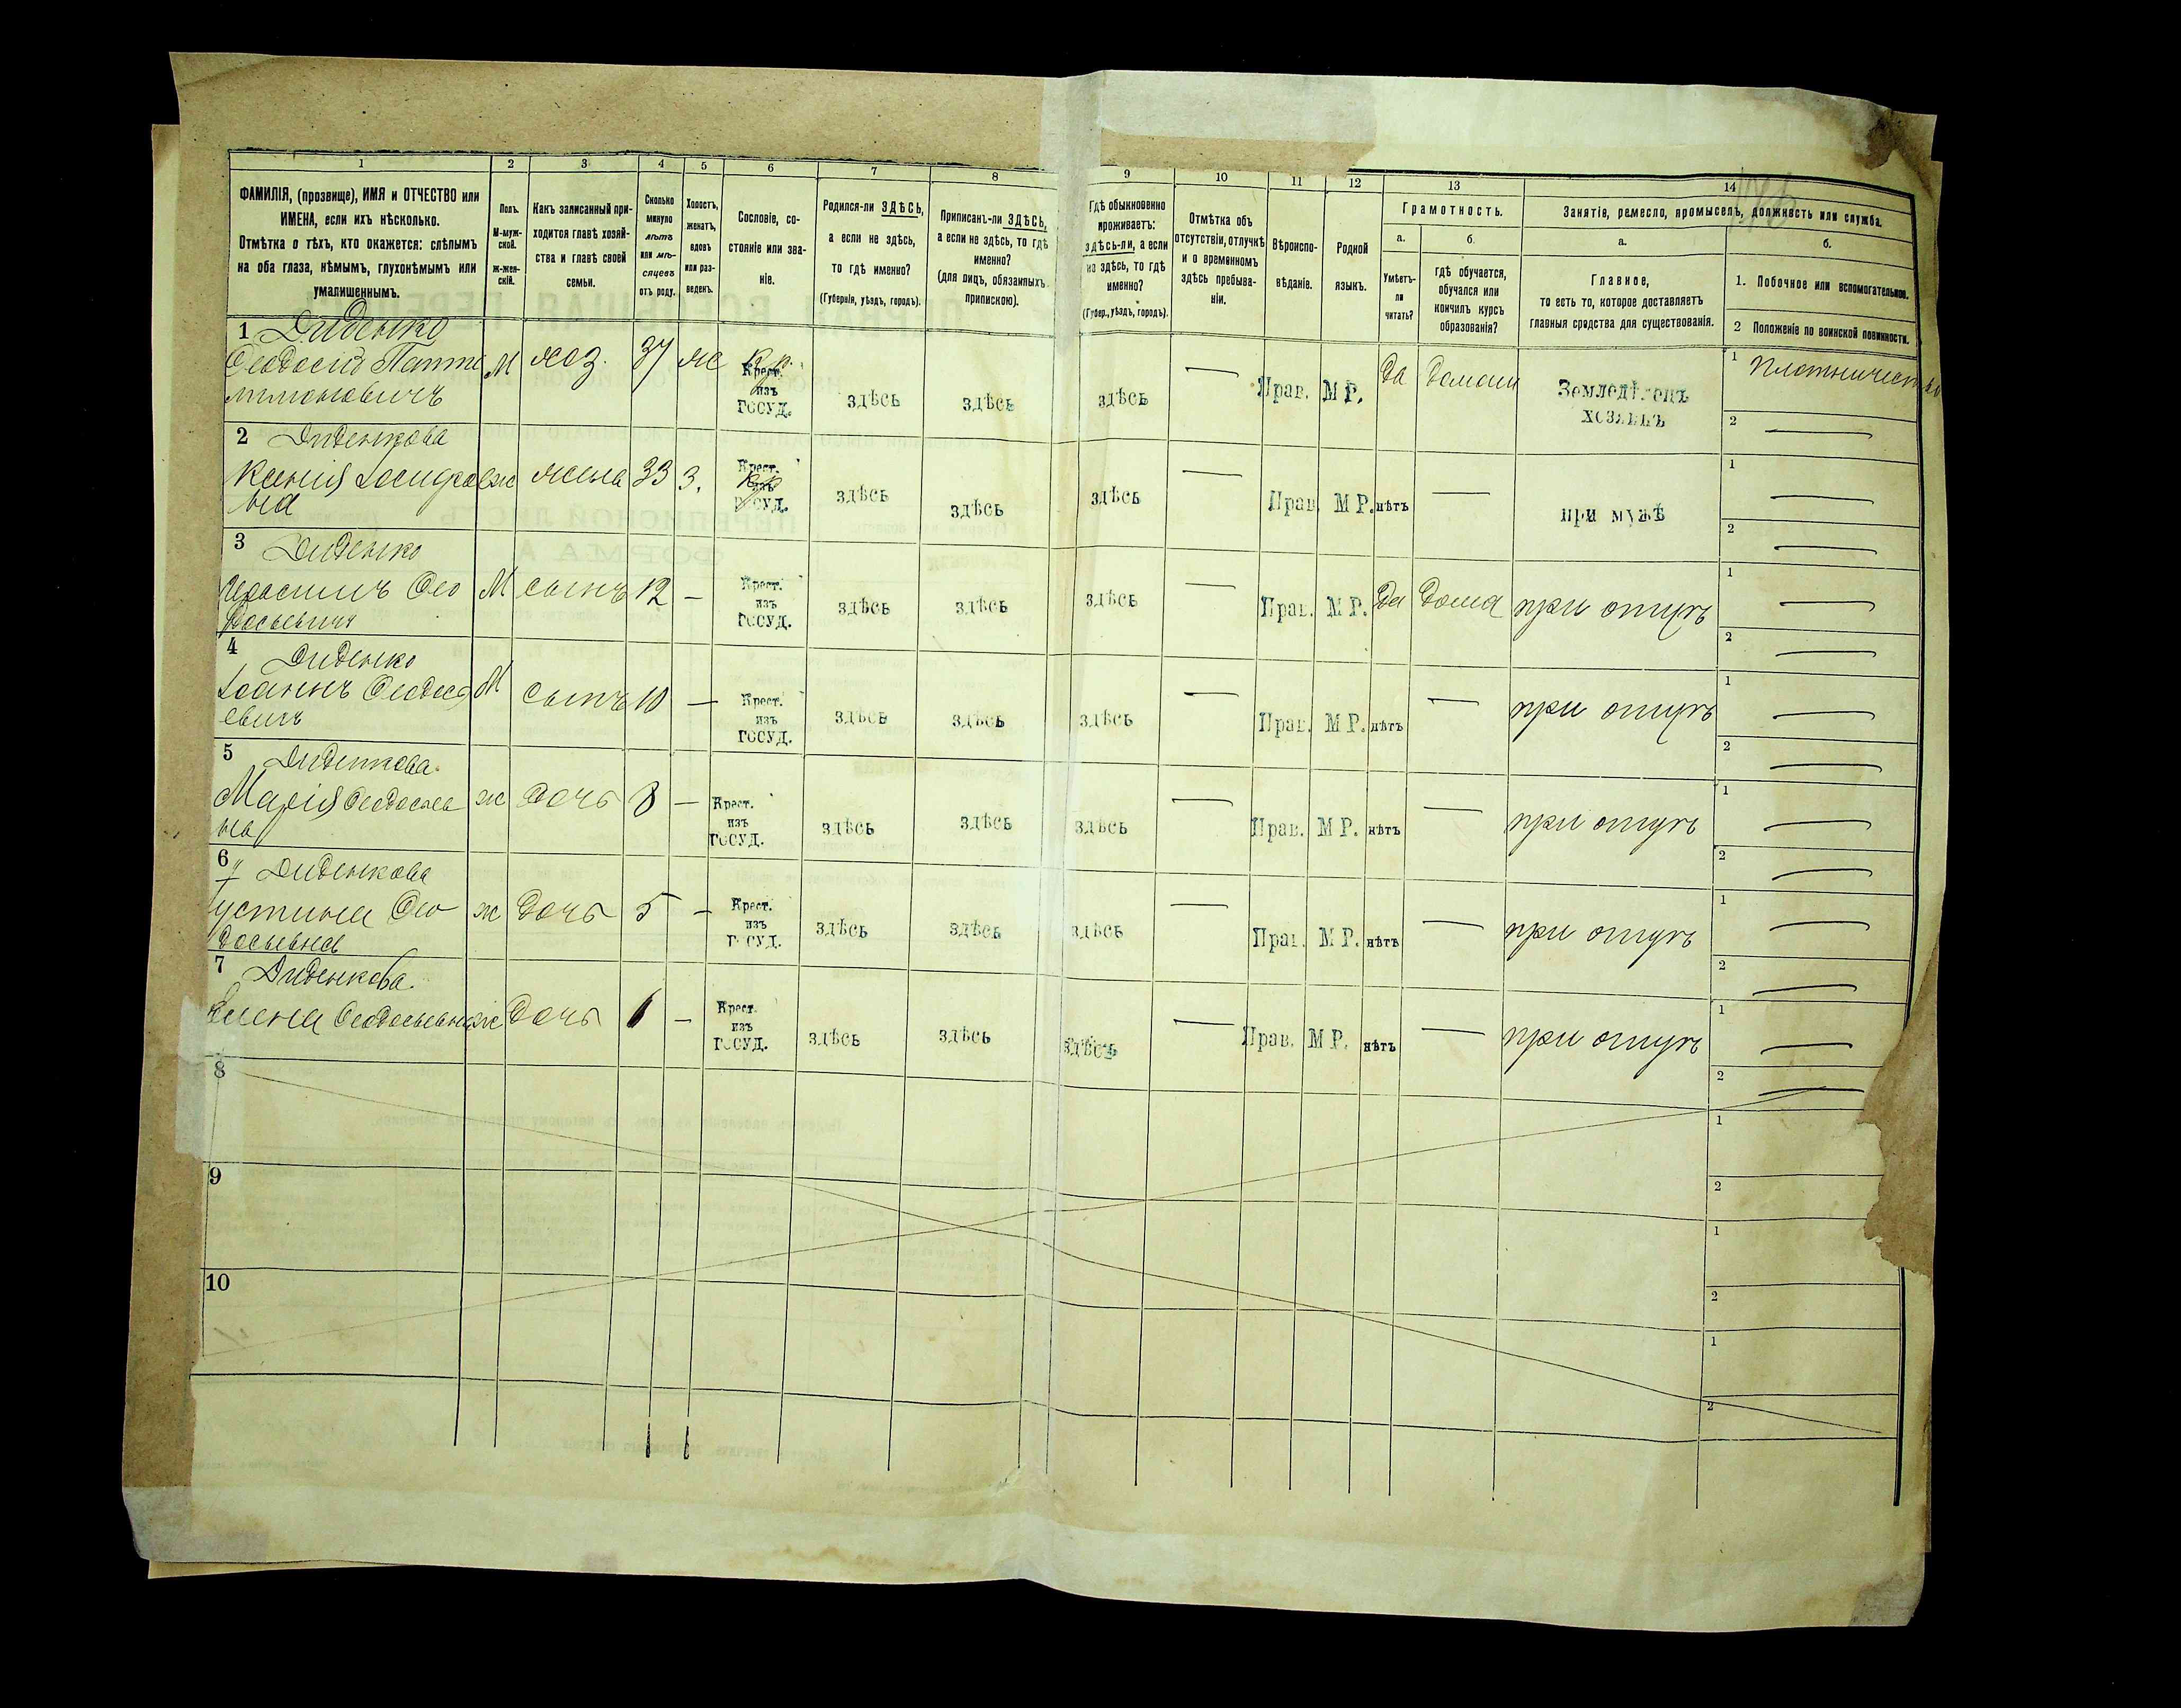 1 2 3 4 5 6 7 8 9 10 11 12 13 14
ФАМИЛІЯ, (прозвище), ИМЯ и ОТЧЕСТВО или
ИМЕНА, если ихъ нѣсколько.
Отмѣтка о тѣхъ, кто окажется: слѣпымъ
на оба глаза, нѣмымъ, глухонѣмымъ или
умалишеннымъ.
Полъ.
М-муж-
ской.
ж-жен-
скій.
Какъ записанный при-
ходится главѣ хозяй-
ства и главѣ своей
семьи.
Сколько
минуло
лѣтъ
или мѣ-
сяцевъ
отъ роду.
Холостъ,
женатъ,
вдовъ
или раз-
веденъ.
Сословіе, со-
стояніе или зва-
ніе.
Родился-ли ЗДѢСЬ,
а если не здѣсь,
то гдѣ именно?
(Губернія, уѣздъ, городъ).
Приписанъ-ли ЗДѢСЬ,
а если не здѣсь, то гдѣ
именно?
(для лицъ, обязанныхъ
припискою).
Гдѣ обыкновенно
проживаетъ:
здѣсь-ли, а если
не здѣсь, то гдѣ
именно?
(Губер., уѣздъ, городъ).
Отмѣтка объ
отсутствіи, отлучкѣ
и о временномъ
здѣсь пребыва-
ніи.
Вѣроиспо-
вѣданіе.
Родной
языкъ.
Грамотность.
а.
Умѣетъ-
ли
читать?
б.
гдѣ обучается,
обучался или
кончилъ курсъ
образованія?
Занятіе, ремесло, промыселъ, должность или служба.
а.
Главное,
то есть то, которое доставляетъ
главныя средства для существованія.
б.
1. Побочное или вспомогательное.
2 Положеніе по воинской повинности.
1 Диденко
Ѳеодосій Панте
лимоновичъ
М хоз. 37 ж Крест. изъ ГОСУД. здѣсь здѣсь здѣсь — Прав. М Р. да домаш Земледѣлецъ хозяинъ 1 Плотничество 2 —
2 Диденкова
Ксенія Іосифов
на
ж жена 33 З. Крест. изъ ГОСУД. здѣсь здѣсь здѣсь — Прав. М Р. нѣтъ — при мужѣ 1 — 2 —
3 Диденко
Герасимъ Ѳео
досьевичъ
М сынъ 12 — Крест. изъ ГОСУД. здѣсь здѣсь здѣсь — Прав. М Р. да дома при отцѣ 1 — 2 —
4 Диденко
Іоаннъ Ѳеодось
евичъ
М сынъ 10 — Крест. изъ ГОСУД. здѣсь здѣсь здѣсь — Прав. М Р. нѣтъ — при отцѣ 1 — 2 —
5 Диденкова
Марія Ѳеодосьев
на
ж дочь 8 — Крест. изъ ГОСУД. здѣсь здѣсь здѣсь — Прав. М Р. нѣтъ — при отцѣ 1 — 2 —
6 Диденкова
Іустина Ѳео
досьевна
ж дочь 5 — Крест. изъ ГОСУД. здѣсь здѣсь здѣсь — Прав. М Р. нѣтъ — при отцѣ 1 — 2 —
7 Диденкова
Елена Ѳеодосьевна ж дочь 1 — Крест. изъ ГОСУД. здѣсь здѣсь здѣсь — Прав. М Р. нѣтъ — при отцѣ 1 — 2 —
8 1 2
9 1 2
10 1 2